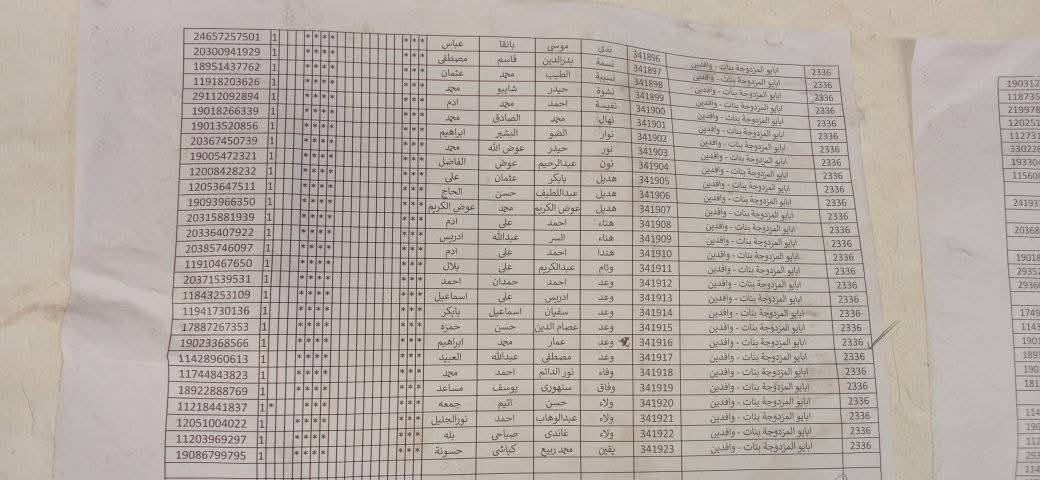 2336 ابابو المزدوجة بنات - وافدين 341896 ندى موسى بانقا عباس *** **** 1 24657257501
2336 ابابو المزدوجة بنات - وافدين 341897 نسمة بدرالدين قاسم مصطفى *** **** 1 20300941929
2336 ابابو المزدوجة بنات - وافدين 341898 نسيبة الطيب محمد عثمان *** **** 1 18951437762
2336 ابابو المزدوجة بنات - وافدين 341899 نشوة حيدر شايبو محمد *** **** 1 11918203626
2336 ابابو المزدوجة بنات - وافدين 341900 نفيسة احمد محمد ادم *** **** 1 29112092894
2336 ابابو المزدوجة بنات - وافدين 341901 نهال محمد الصادق محمد *** **** 1 19018266339
2336 ابابو المزدوجة بنات - وافدين 341902 نوار الضو البشير ابراهيم *** **** 1 19013520856
2336 ابابو المزدوجة بنات - وافدين 341903 نور حيدر عوض الله محمد *** **** 1 20367450739
2336 ابابو المزدوجة بنات - وافدين 341904 نون عبدالرحيم عوض الفاضل *** **** 1 19005472321
2336 ابابو المزدوجة بنات - وافدين 341905 هديل بابكر عثمان على *** **** 1 12008428232
2336 ابابو المزدوجة بنات - وافدين 341906 هديل عبداللطيف حسن الحاج *** **** 1 12053647511
2336 ابابو المزدوجة بنات - وافدين 341907 هديل عوض الكريم محمد عوض الكريم *** **** 1 19093966350
2336 ابابو المزدوجة بنات - وافدين 341908 هناء احمد على ادم *** **** 1 20315881939
2336 ابابو المزدوجة بنات - وافدين 341909 هناء السر عبدالله ادريس *** **** 1 20336407922
2336 ابابو المزدوجة بنات - وافدين 341910 هندا احمد على ادم *** **** 1 20385746097
2336 ابابو المزدوجة بنات - وافدين 341911 وئام عبدالكريم على بلال *** **** 1 11910467650
2336 ابابو المزدوجة بنات - وافدين 341912 وعد احمد حمدان احمد *** **** 1 20371539531
2336 ابابو المزدوجة بنات - وافدين 341913 وعد ادريس على اسماعيل *** **** 1 11843253109
2336 ابابو المزدوجة بنات - وافدين 341914 وعد سفيان اسماعيل بابكر *** **** 1 11941730136
2336 ابابو المزدوجة بنات - وافدين 341915 وعد عصام الدين حسن حمزه *** **** 1 17887267353
2336 ابابو المزدوجة بنات - وافدين 341916 وعد عمار محمد ابراهيم *** **** 1 19023368566
2336 ابابو المزدوجة بنات - وافدين 341917 وعد مصطفى عبدالله العبيد *** **** 1 11428960613
2336 ابابو المزدوجة بنات - وافدين 341918 وفاء نور الدائم احمد محمد *** **** 1 11744843823
2336 ابابو المزدوجة بنات - وافدين 341919 وفاق سنهورى يوسف مساعد *** **** 1 18922888769
2336 ابابو المزدوجة بنات - وافدين 341920 ولاء حسن اتيم جمعه *** **** * 1 11218441837
2336 ابابو المزدوجة بنات - وافدين 341921 ولاء عبدالوهاب احمد نورالجليل *** **** 1 12051004022
2336 ابابو المزدوجة بنات - وافدين 341922 ولاء غاندى صباحى بله *** **** 1 11203969297
2336 ابابو المزدوجة بنات - وافدين 341923 يقين محمد ربيع كباشى حسونة *** **** 1 19086799795